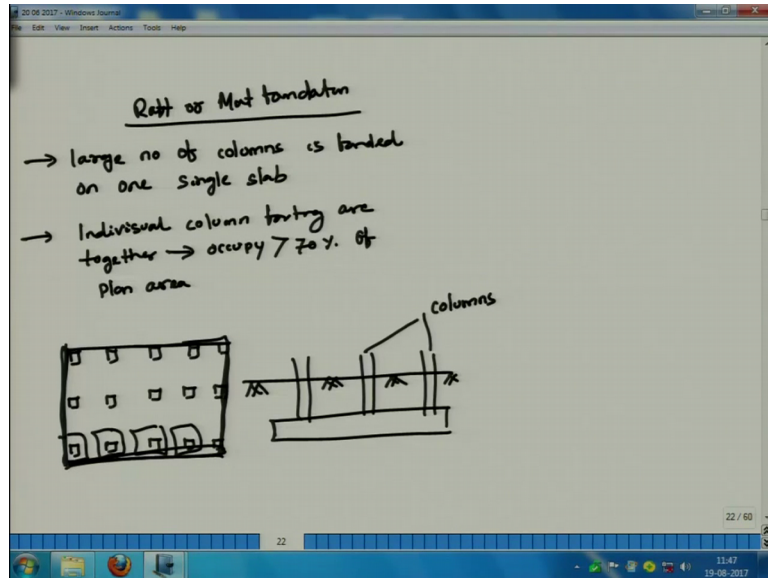 20 06 2017 - Windows Journal
File Edit View Insert Actions Tools Help
Raft or Mat foundation
→ large no of columns is landed
on one single slab
→ Indivisual column footing are
together → occupy > 70 %. of
plan area
columns
22 / 60
22
11:47
19-08-2017